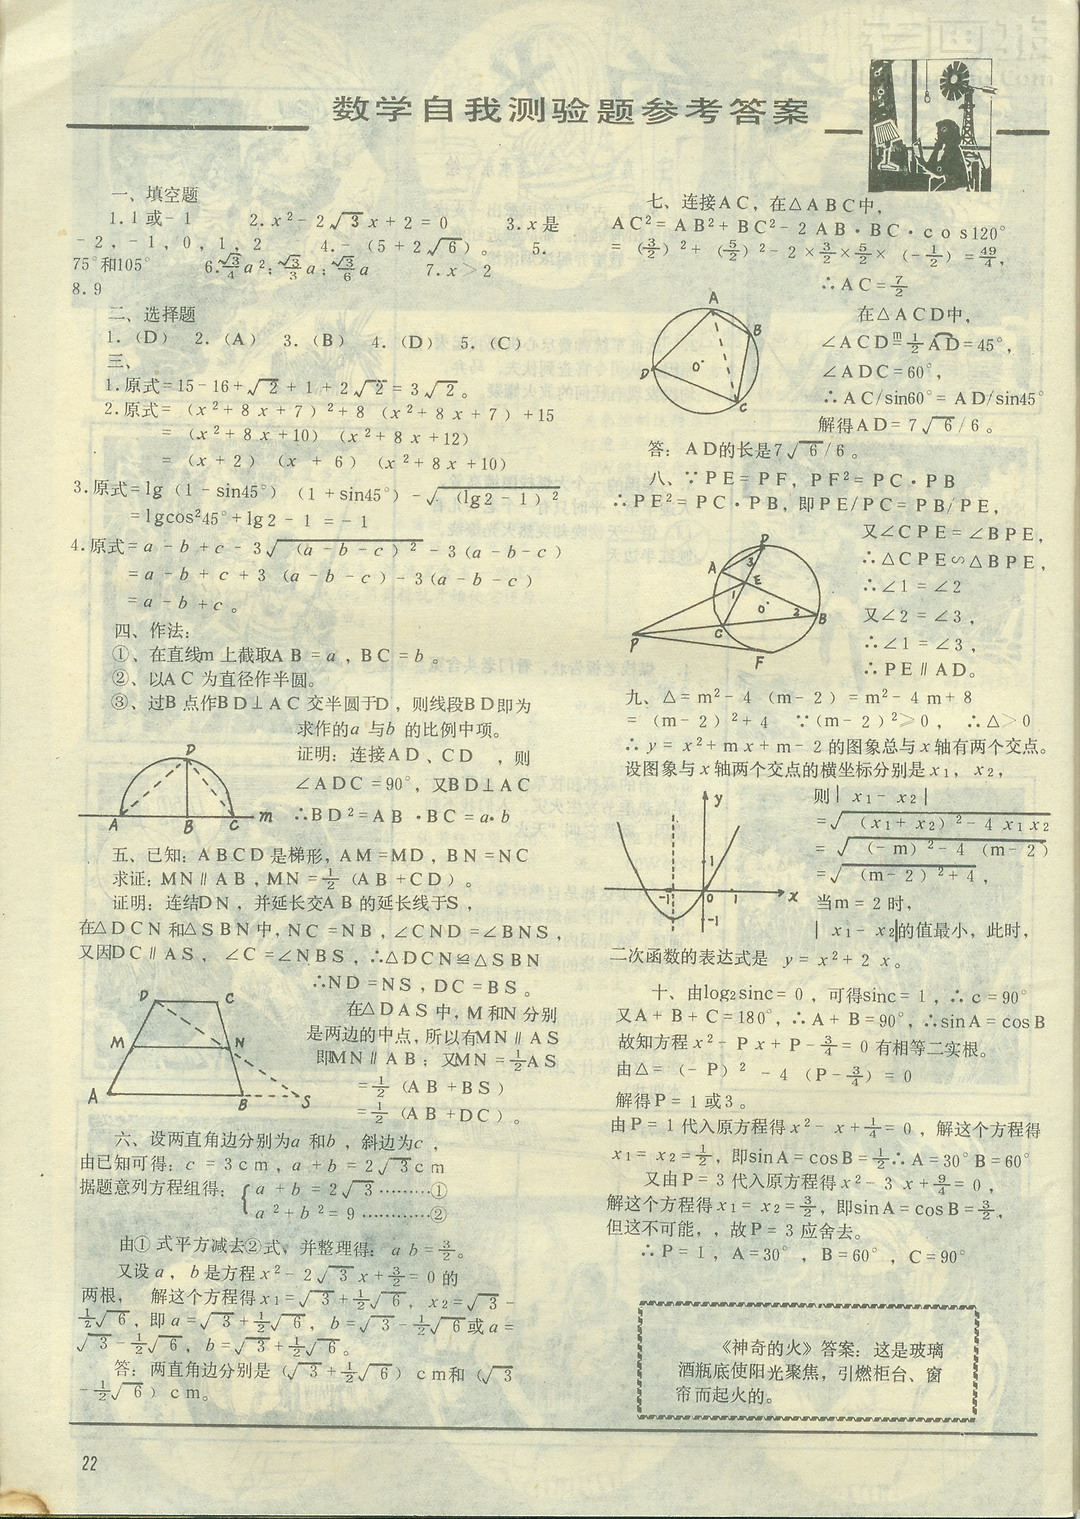 数学自我测验题参考答案
一、填空题
1.1或-1 2.x²-2√3x+2=0 3.x是
-2,-1,0,1,2 4.-(5+2√6)。 5.
75°和105° 6.√3/4a²;√3/3a;√3/6a 7.x>2
8.9
二、选择题
1.(D) 2.(A) 3.(B) 4.(D) 5.(C)
三、
1.原式=15-16+√2+1+2√2=3√2。
2.原式=(x²+8x+7)²+8(x²+8x+7)+15
=(x²+8x+10)(x²+8x+12)
=(x+2)(x+6)(x²+8x+10)
3.原式=lg(1-sin45°)(1+sin45°)-√(lg2-1)²
=lgcos²45°+lg2-1=-1
4.原式=a-b+c-3√(a-b-c)²-3(a-b-c)
=a-b+c+3(a-b-c)-3(a-b-c)
=a-b+c。
四、作法:
①、在直线m上截取AB=a,BC=b。
②、以AC为直径作半圆。
③、过B点作BD⊥AC交半圆于D,则线段BD即为
求作的a与b的比例中项。
证明:连接AD、CD,则
∠ADC=90°,又BD⊥AC
∴BD²=AB·BC=a·b
D
A B C m
五、已知:ABCD是梯形,AM=MD,BN=NC
求证:MN∥AB,MN=1/2(AB+CD)。
证明:连结DN,并延长交AB的延长线于S,
在△DCN和△SBN中,NC=NB,∠CND=∠BNS,
又因DC∥AS,∠C=∠NBS,∴△DCN≌△SBN
∴ND=NS,DC=BS。
在△DAS中,M和N分别
是两边的中点,所以有MN∥AS
即MN∥AB;又MN=1/2AS
=1/2(AB+BS)
=1/2(AB+DC)。
D C
M N
A B S
六、设两直角边分别为a和b,斜边为c,
由已知可得:c=3cm,a+b=2√3cm
据题意列方程组得:{a+b=2√3………①
a²+b²=9…………②
由①式平方减去②式,并整理得:ab=3/2。
又设a,b是方程x²-2√3x+3/2=0的
两根, 解这个方程得x₁=√3+1/2√6,x₂=√3-
1/2√6,即a=√3+1/2√6,b=√3-1/2√6或a=
√3-1/2√6,b=√3+1/2√6。
答:两直角边分别是(√3+1/2√6)cm和(√3
-1/2√6)cm。
七、连接AC,在△ABC中,
AC²=AB²+BC²-2AB·BC·cos120°
=(3/2)²+(5/2)²-2×3/2×5/2×(-1/2)=49/4,
∴AC=7/2
在△ACD中,
∠ACD m= 1/2AD=45°,
∠ADC=60°,
∴AC/sin60°=AD/sin45°
解得AD=7√6/6。
A
B
D O
C
答:AD的长是7√6/6。
八、∵PE=PF,PF²=PC·PB
∴PE²=PC·PB,即PE/PC=PB/PE,
又∠CPE=∠BPE,
∴△CPE∽△BPE,
∴∠1=∠2
又∠2=∠3,
∴∠1=∠3,
∴PE∥AD。
D
A 3
E
1 O 2 B
P C
F
九、△=m²-4(m-2)=m²-4m+8
=(m-2)²+4 ∵(m-2)²≥0,∴△>0
∴y=x²+mx+m-2的图象总与x轴有两个交点。
设图象与x轴两个交点的横坐标分别是x₁,x₂,
则|x₁-x₂|
=√(x₁+x₂)²-4x₁x₂
=√(-m)²-4(m-2)
=√(m-2)²+4,
当m=2时,
|x₁-x₂|的值最小,此时,
y
1
-1 0 1 x
-1
二次函数的表达式是 y=x²+2x。
十、由log₂sinc=0,可得sinc=1,∴c=90°
又A+B+C=180°,∴A+B=90°,∴sinA=cosB
故知方程x²-Px+P-3/4=0有相等二实根。
由△=(-P)²-4(P-3/4)=0
解得P=1或3。
由P=1代入原方程得x²-x+1/4=0,解这个方程得
x₁=x₂=1/2,即sinA=cosB=1/2∴A=30°B=60°
又由P=3代入原方程得x²-3x+9/4=0,
解这个方程得x₁=x₂=3/2,即sinA=cosB=3/2,
但这不可能,,故P=3应舍去。
∴P=1,A=30°,B=60°,C=90°
《神奇的火》答案:这是玻璃
酒瓶底使阳光聚焦,引燃柜台、窗
帘而起火的。
22